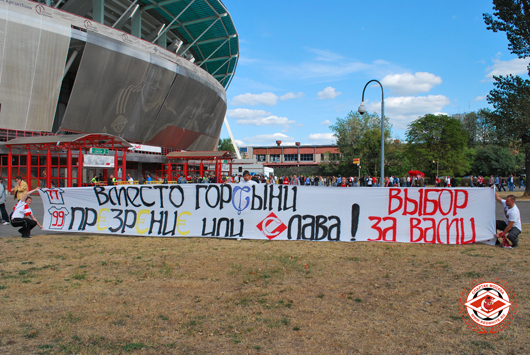 99
ВМЕСТО ГОРДЫНИ
ПРЕЗРЕНИЕ ИЛИ СЛАВА!
ВЫБОР
ЗА ВАМИ